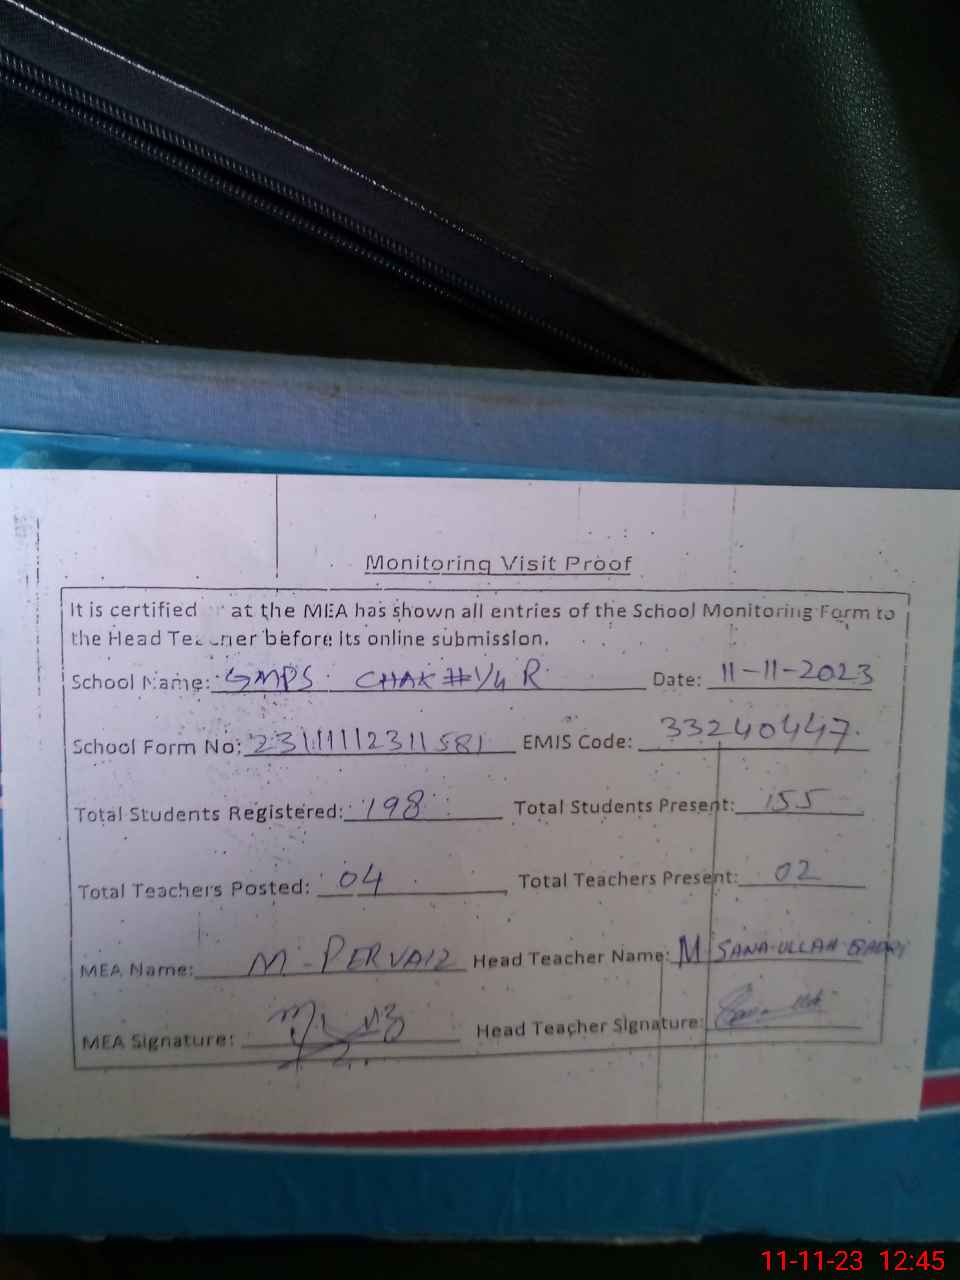 Monitoring Visit Proof
It is certified at the MEA has shown all entries of the School Monitoring Form to
the Head Teacher before its online submission.
School Name: GMPS CHAK #1/4 R Date: 11-11-2023
School Form No: EMIS Code: 33240447
Total Students Registered: 198 Total Students Present: 155
Total Teachers Posted: 04 Total Teachers Present: 02
MEA Name: M. PERVAIZ Head Teacher Name: M SANA-ULLAH
MEA Signature: Head Teacher Signature:
11-11-23 12:45